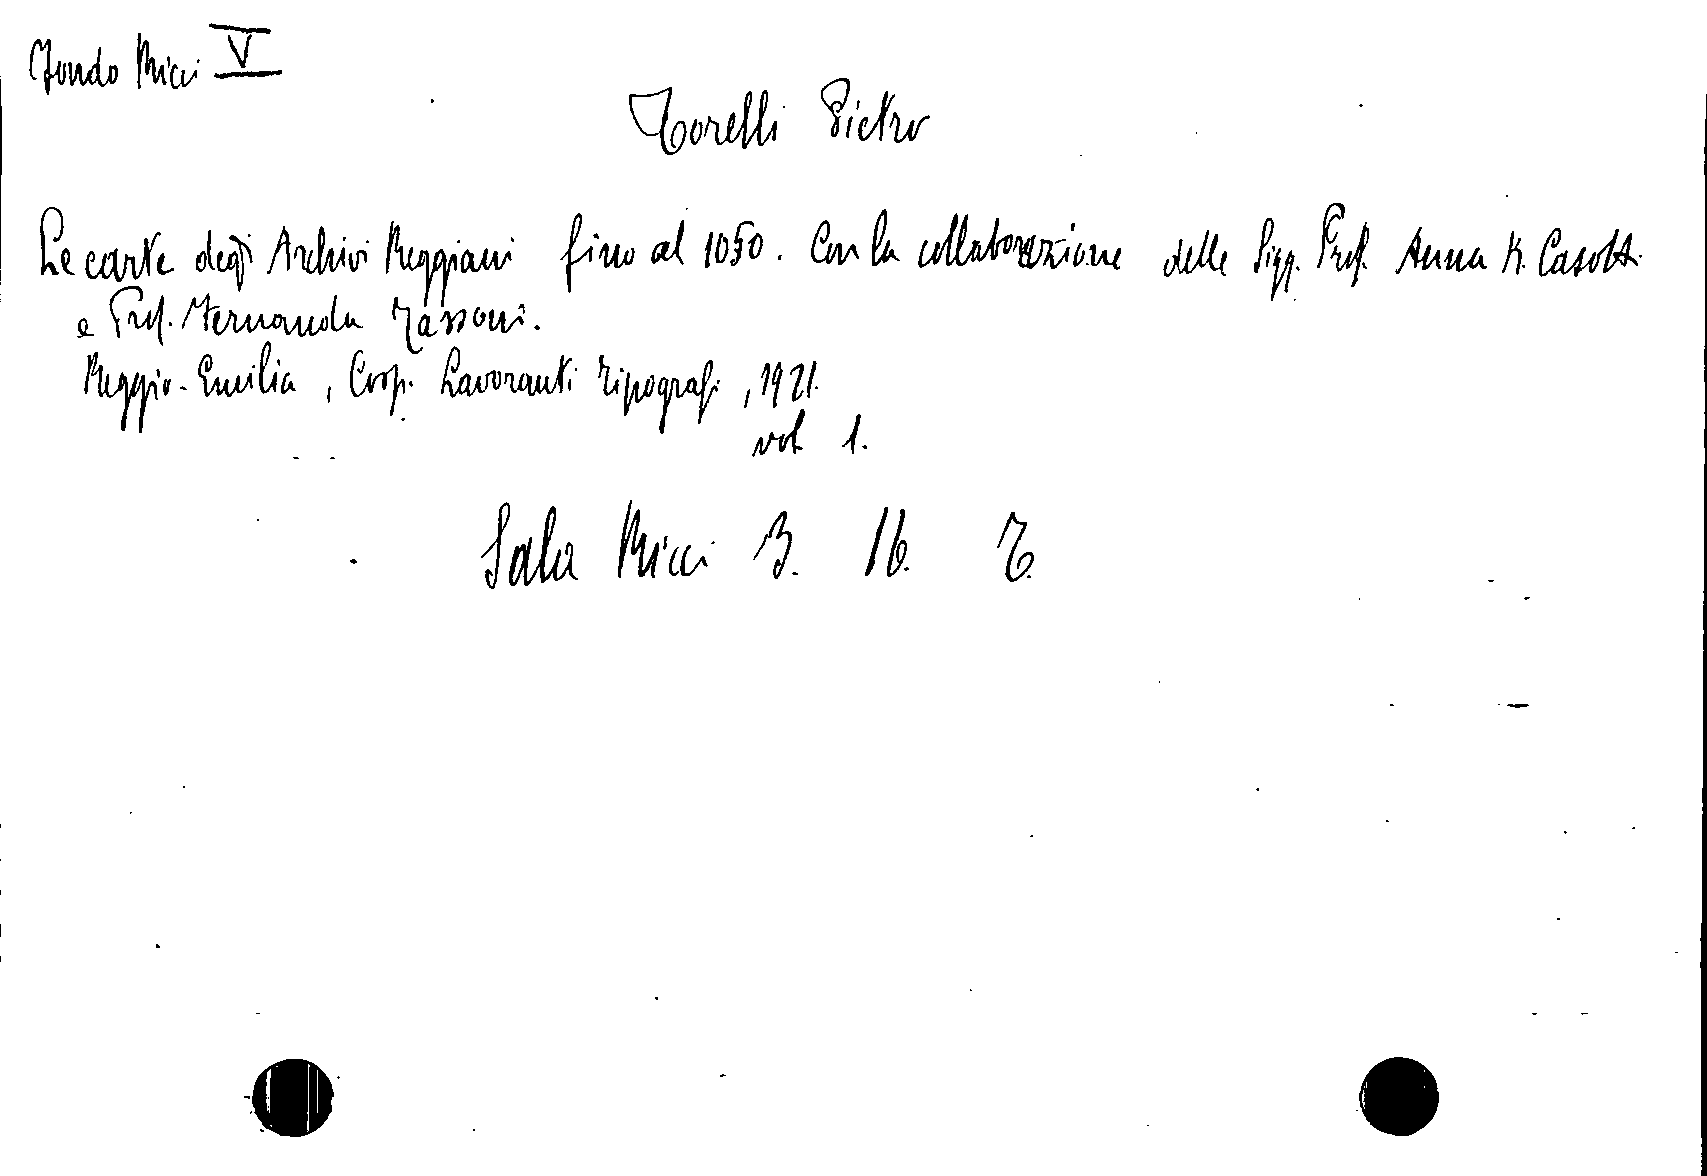 Fondo Ricci V
Torelli Pietro
Le carte degli Archivi Reggiani fino al 1050. Con la collaborazione delle Sigg. Prof. Anna K. Casotti
e Prof. Fernanda Tassoni.
Reggio-Emilia, Coop. Lavoranti Tipografi, 1921.
vol 1.
Sala Ricci 3. 16. 7.